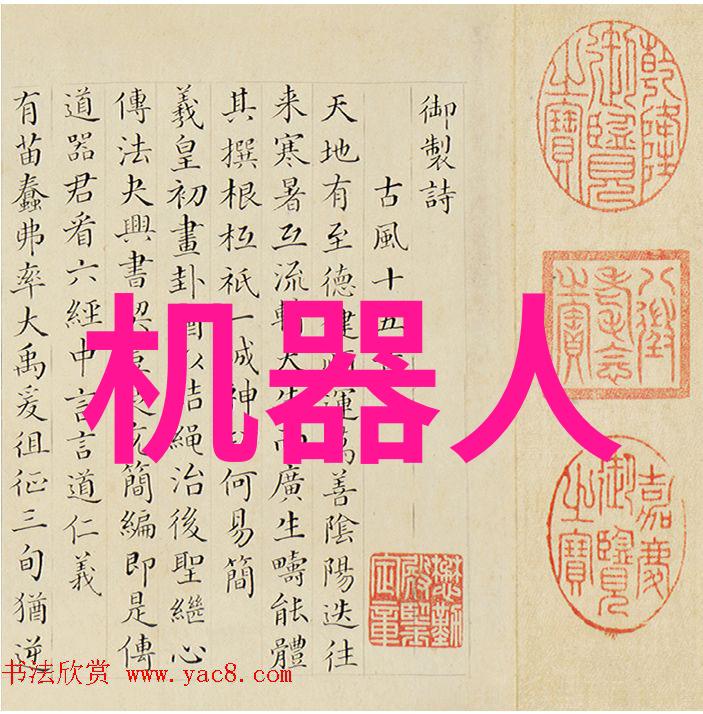 乾隆御覽之寶
八徵耄念之寶
嘉慶御覽之寶
御製詩
古風十五
懋勤殿鑒定章
天地有至德健順運萬善陰陽迭往
来寒暑互流轉大生而廣生疇能體
其撰根柢祇一誠神何易簡
羲皇初畫卦以结繩治後聖繼心
傳法夬興書契簡編即是傳
道器君看六經中言言道仁義
有苗蠢弗率大禹爰徂征三旬猶逆
机器人
书法欣赏 www.yac8.com